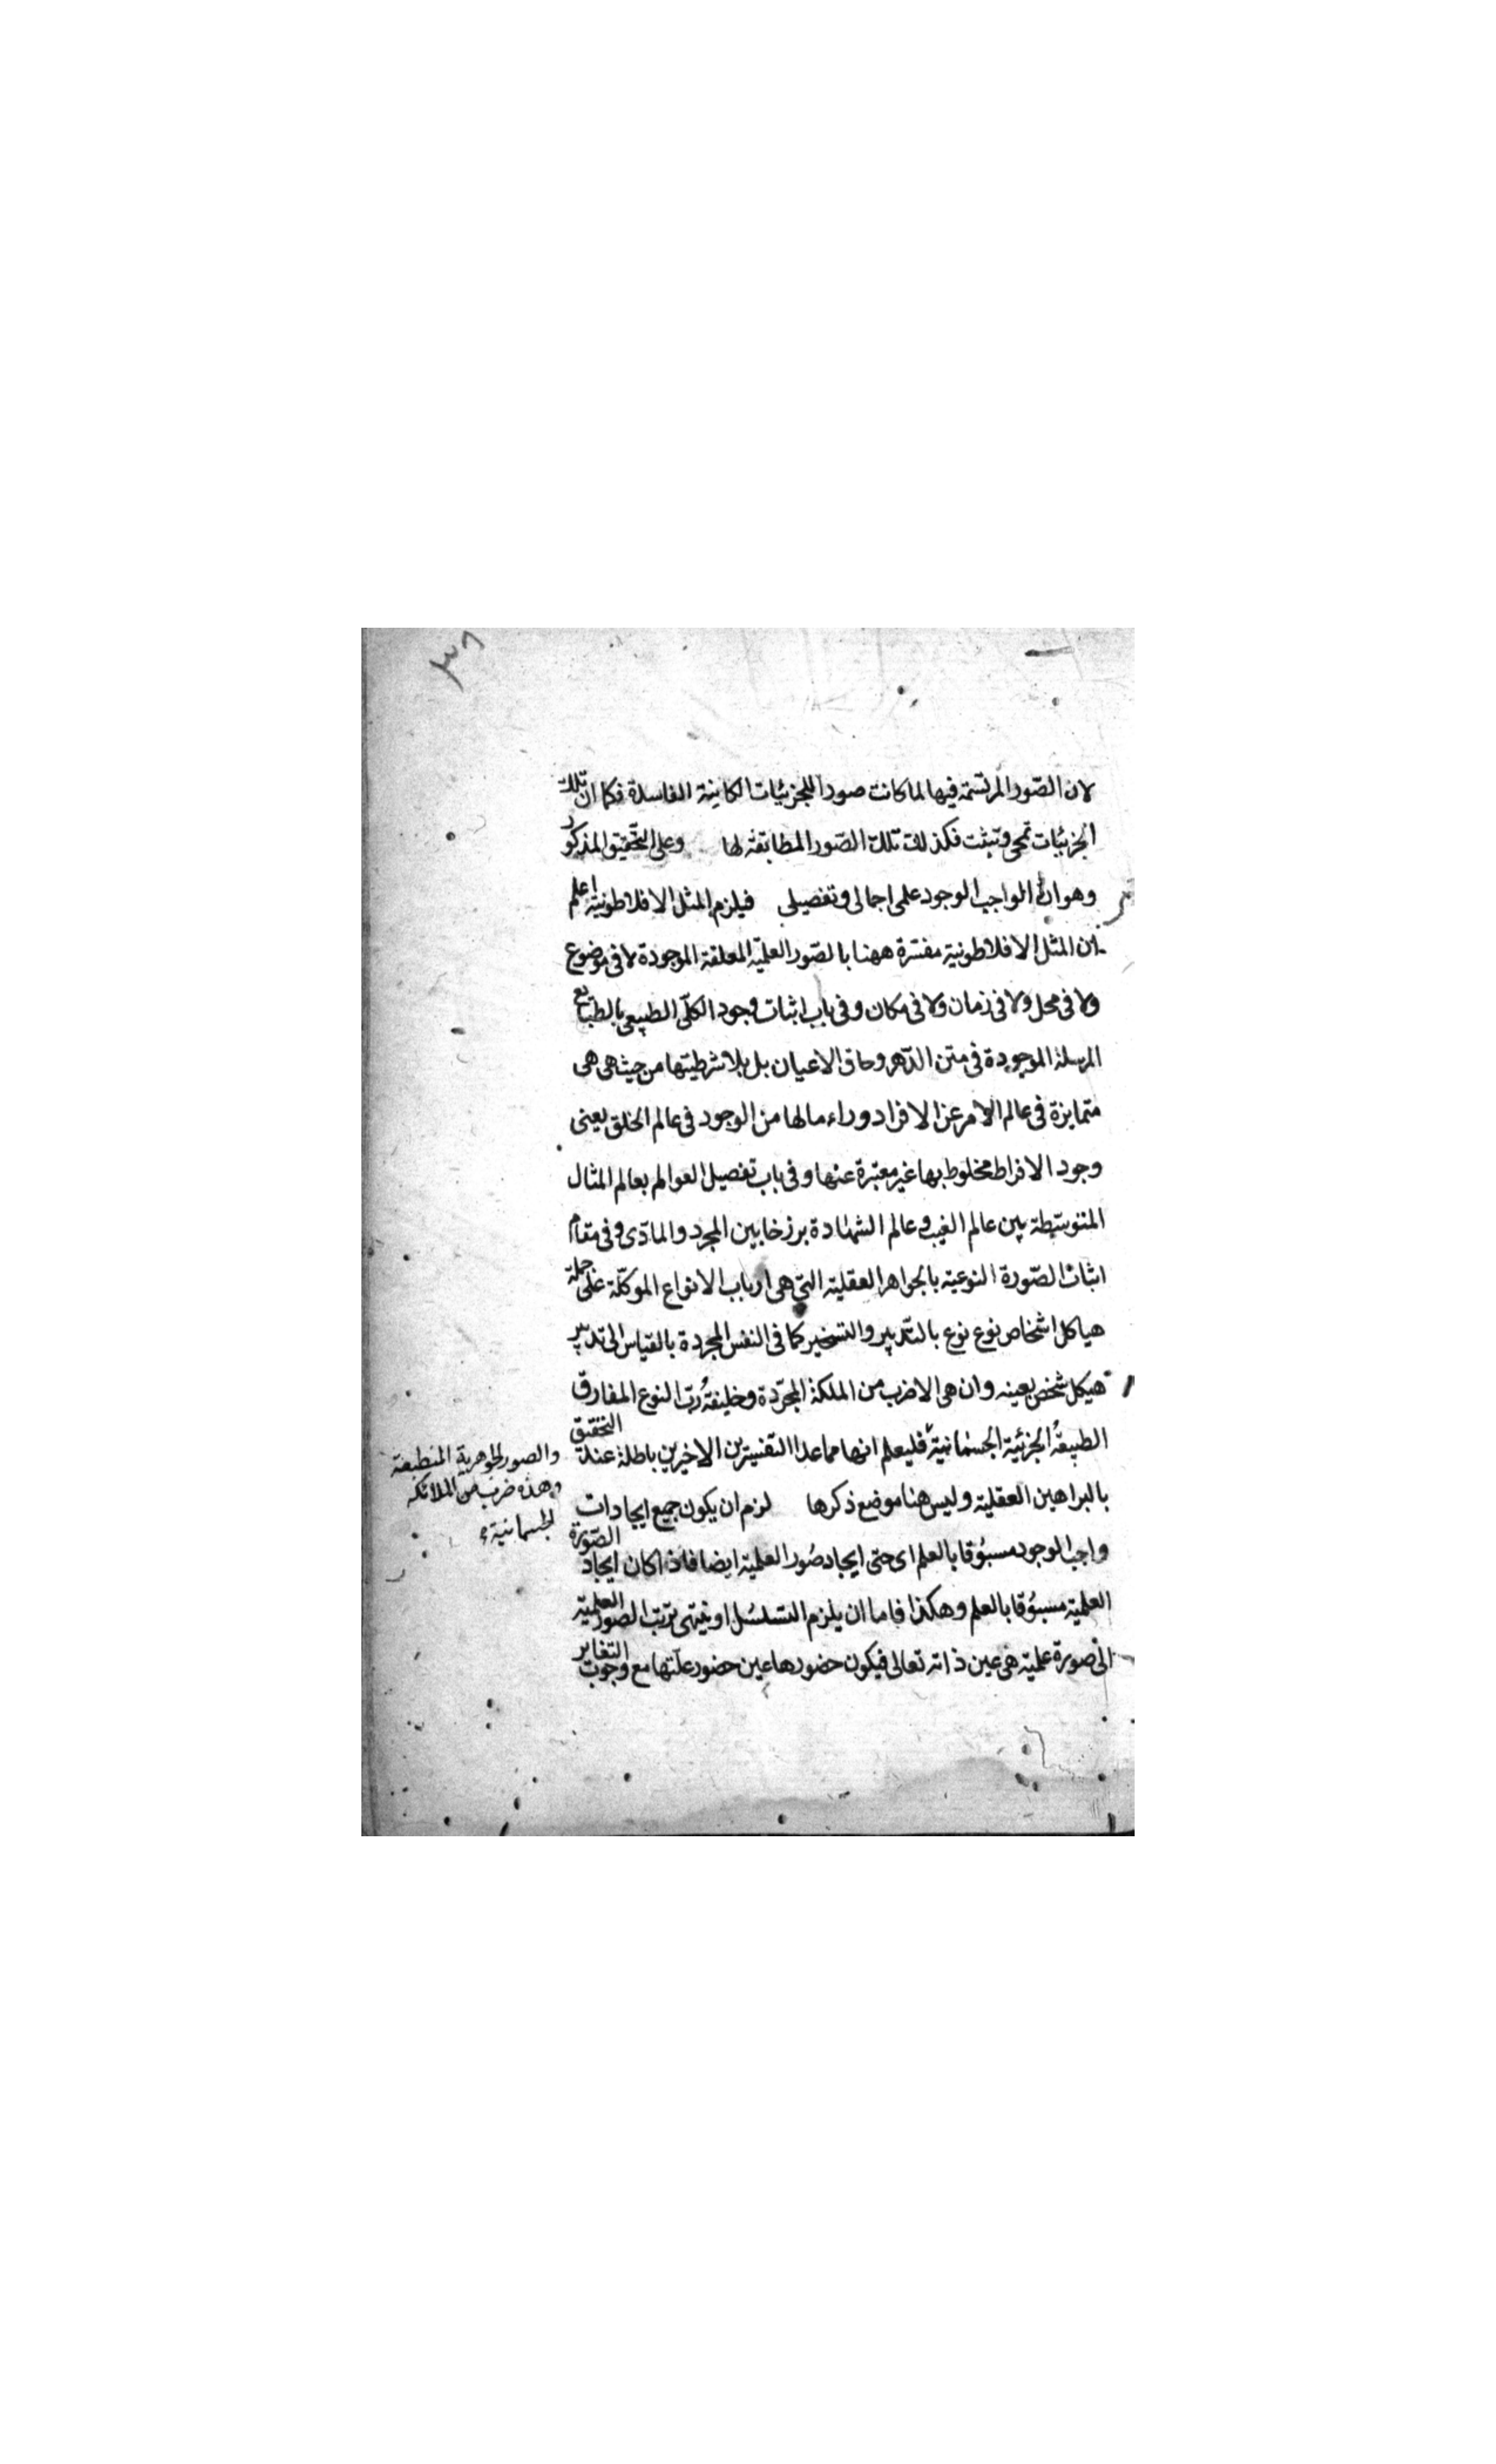 ٣٨
لان الصّور المرتسمة فيها لما كانت صورا للجزئيات الكاينة الفاسدة فكما ان تلك
الجزئيات تمحى وتثبت فكذلك تلك الصّور المطابقة لها وعلى التحقيق المذكور
وهو ان الواجب الوجود علمى اجمالى وتفصيلى فيلزم المثل الافلاطونية اعلم
ان المثل الافلاطونية مفسّرة ههنا بالصّور العلميّة المعلقة الموجودة لا فى موضوع
ولا فى محل ولا فى زمان ولا فى مكان وفى باب اثبات وجود الكلّى الطبيعى بالطبايع
المرسلة الموجودة فى متن الدّهر وحاق الاعيان بل بلا شرطيتها من حيث هى هى
متمايزة فى عالم الامر عن الافراد وراء مالها من الوجود فى عالم الخلق يعنى
وجود الافراط مخلوط بها غير معتبرة عنها وفى باب تفصيل العوالم بعالم المثال
المتوسّطة بين عالم الغيب وعالم الشهادة برزخا بين المجرد والمادّى وفى مقام
اثبات الصّورة النوعية بالجواهر العقلية التى هى ارباب الانواع الموكّلة على جملة
هياكل اشخاص نوع نوع بالتدبير والتسخير كما فى النفس المجردة بالقياس الى تدبير
هيكل شخص بعينه وان هى الا ضرب من الملكة المجرّدة وخليفة رُبّ النوع المفارق
الطبيعةُ الجزئية الجسمانية فليعلم انها مما عدا التفسيرين الاخيرين باطلة عند التحقيق
بالبراهين العقلية وليس هنا موضع ذكرها لزم ان يكون جميع ايجادات
واجب الوجود مسبوقا بالعلم اى حتى ايجاد صُور العلمية ايضا فاذا كان ايجاد الصّورة
العلمية مسبوقا بالعلم وهكذا فاما ان يلزم التسلسُل او ينتهى ترتب الصور العلمية
الى صورة علمية هى عين ذاته تعالى فيكون حضورها عين حضور علّتها مع وجوب التغاير
والصور الجوهرية المنطبعة
وهذه ضرب من الملائكه
الجسمانية